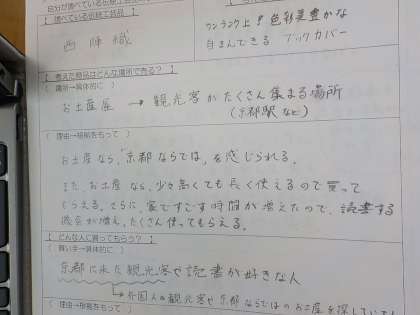 【 調べている伝統工芸品 】
西陣織
ワンランク上!色彩豊かな
自まんできる ブックカバー
【 考えた商品はどんな場所で売る? 】
( 場所→具体的に )
お土産屋 → 観光客がたくさん集まる場所
(京都駅 など)
( 理由→根拠をもって )
お土産なら、「京都ならでは」を感じられる。
また、お土産なら、少々高くても長く使えるので買って
もらえる。さらに、家ですごす時間が増えたので、読書する
機会が増え、たくさん使ってもらえる。
【 どんな人に買ってもらう? 】
( 買い手→具体的に )
京都に来た観光客や読書が好きな人
→外国人の観光客や京都ならではのお土産を探していた
( 理由→根拠をもって )